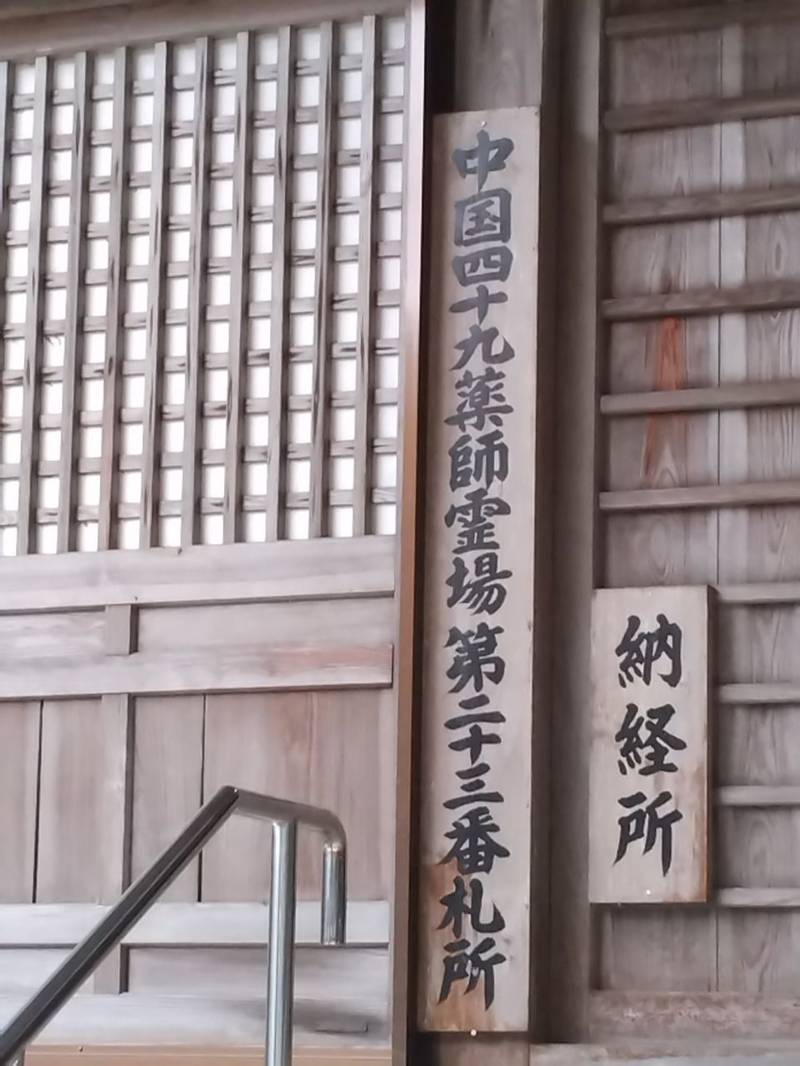 中国四十九薬師霊場第二十三番札所
納経所